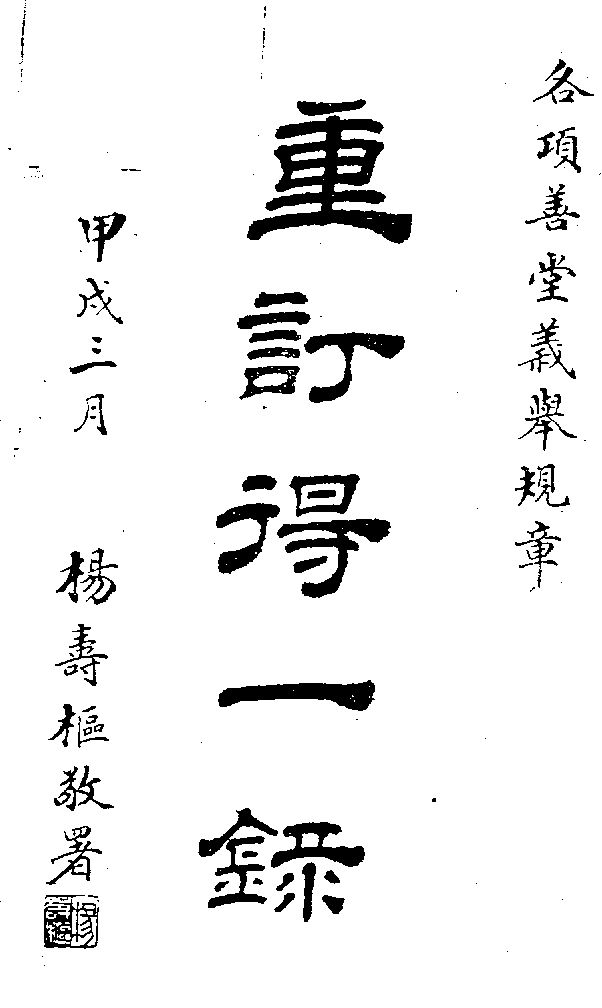 各項善堂義舉規章
重訂得一録
甲戌三月 楊壽樞敬署